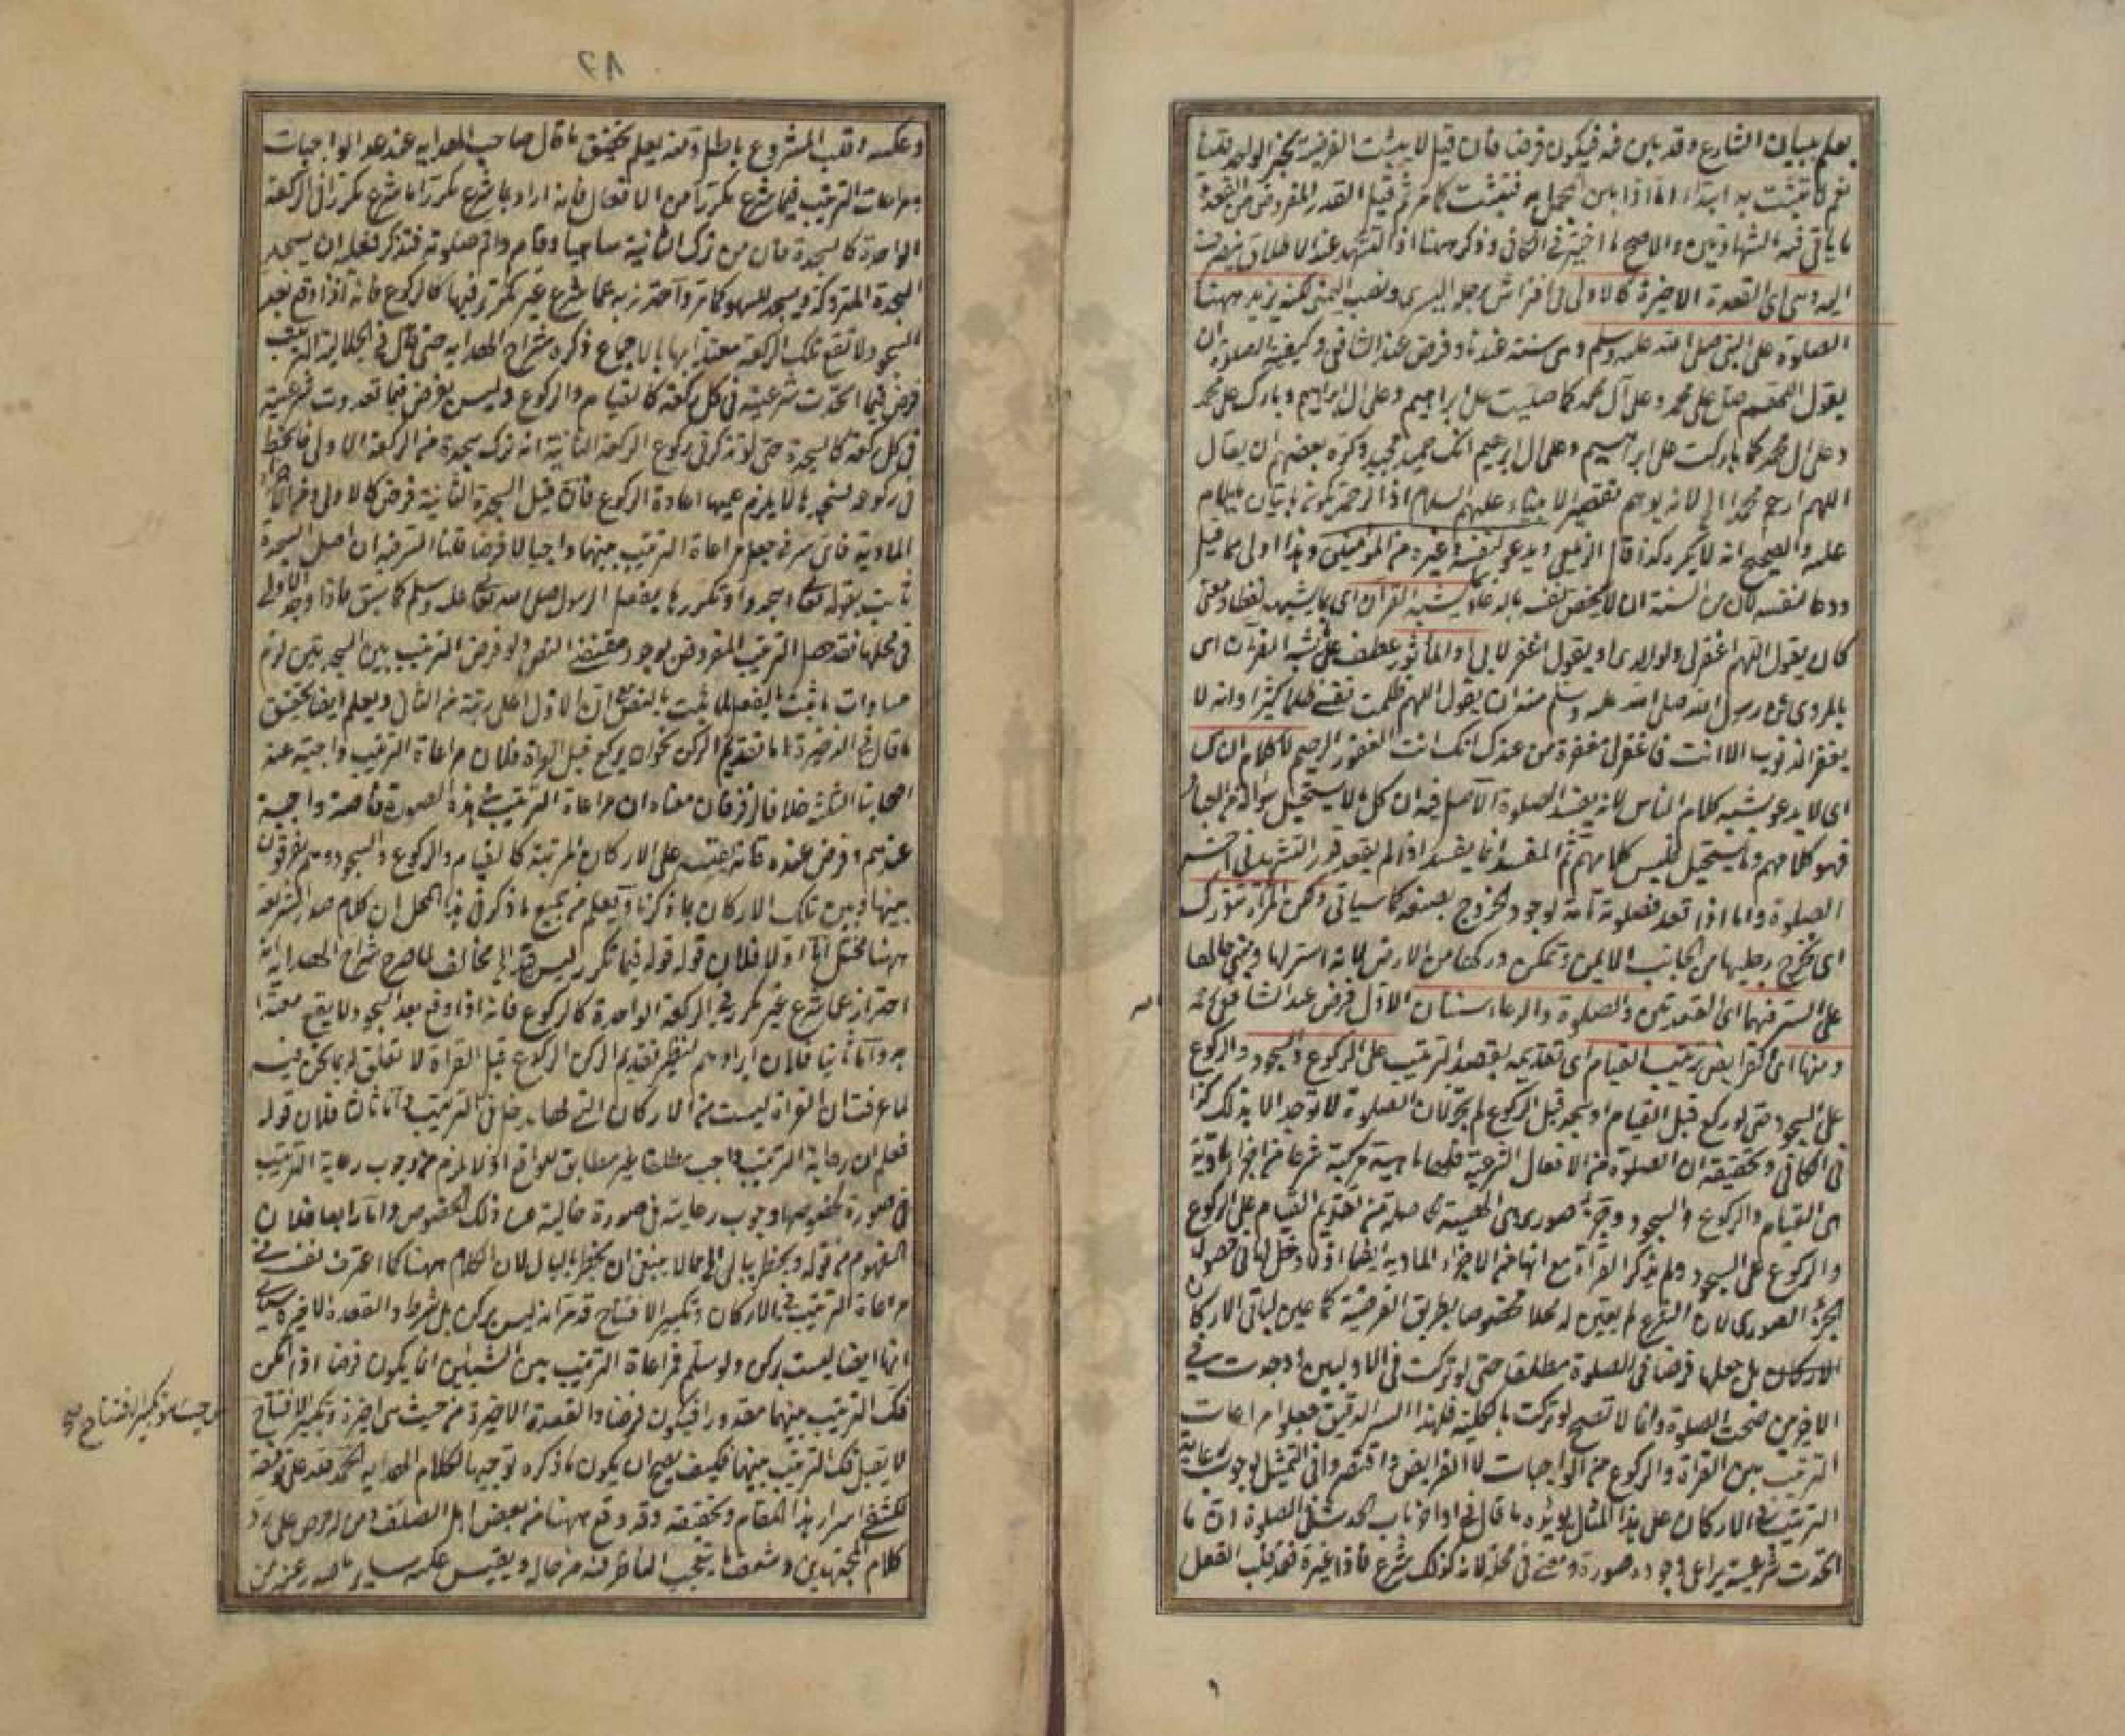 يعلم ببيان الشارع وقد بين فيه فيكون فرضا فان قيل لا يثبت الفرضية بخبر الواحد قلنا
نعم لا تثبت به ابتداء اما اذا بين المجمل به فتثبت كما مر ثم قيل القدر المفروض من القعدة
ما ياتي فيه الشهادتين والاصح ما اختير في الكافي وذكر ههنا اذ التشهد عند الاطلاق ينصرف
اليه وهي اي القعدة الاخيرة كالاولى في افتراش رجله اليسرى ونصب اليمنى لكنه يزيد ههنا
الصلوة على النبي صلى الله عليه وسلم وهي سنة عندنا وفرض عند الشافعي وكيفية الصلوة ان
يقول اللهم صل على محمد وعلى آل محمد كما صليت على ابراهيم وعلى ال ابراهيم وبارك على محمد
وعلى ال محمد كما باركت على ابراهيم وعلى ال ابرهيم انك حميد مجيد وكره بعضهم ان يقال
اللهم ارحم محمدا الى لانه يوهم تقصير الانبياء عليهم السلام اذ الرحمة تكون باتيان ما يلام
عليه والصحيح انه لا يكره كذا قال الزيلعي ويدعو لنفسه وغيره من المؤمنين وهذا اولى مما قيل
ودعا لنفسه لان من السنة ان لا يخص نفسه بالدعاء بما يشبه القرآن اي بما يشبهه لفظا ومعنى
كان يقول اللهم اغفر لي ولوالدي او يقول اغفر لابي او الماثور عطف على يشبه القرآن اي
بالمروي عن رسول الله صلى الله عليه وسلم منه ان يقول اللهم ظلمت نفسي ظلما كثيرا وانه لا
يغفر الذنوب الا انت فاغفر لي مغفرة من عندك انك انت الغفور الرحيم لا كلام الناس
اي لا يدعو بشبه كلام الناس لانه يفسد الصلوة الاصل فيه ان كل ما لا يستحيل سؤاله من العباد
فهو كلامهم وما يستحيل فليس كلامهم ثم المفسد انما يفسد اذا لم يقعد قدر التشهد في اخر
الصلوة واما اذا قعد فصلوته تامة لوجود الخروج بصنعه كما سياتي ولكن المراة تتورك
اي تخرج رجليها من الجانب الايمن وتمكن وركها من الارض لانه استر لها ومبنى حالها
على الستر فيهما اي القعدتين والصلوة والدعاء سنتان الاول فرض عند الشافعي كما مر
ومنها اي الفرائض ترتيب القيام اي تقديمه بقصد الترتيب على الركوع والسجود والركوع
على السجود حتى لو ركع قبل القيام او سجد قبل الركوع لم يجز لان الصلوة لا توجد الا بذلك كذا
في الكافي وتحقيقه ان الصلوة من الافعال الشرعية فلها ماهية مركبة شرعا من اجزاء مادية
هي القيام والركوع والسجود وجزء صوري هي الهيئة الحاصلة من تقديم القيام على الركوع
والركوع على السجود ولم يذكر القرآءة مع انها من الاجزاء المادية ايضا اذ لا دخل لها في حصول
الجزء الصوري لان الشرع لم يعين له محلا مخصوصا بطريق الفرضية كما عين لباقي الاركان
الاركان بل جعلها فرضا في الصلوة مطلقا حتى لو تركت في الاوليين ووجدت في
الاخريين صحت الصلوة وانما لا تصح لو تركت بالكلية فلهذا السر الدقيق جعلوا مراعات
الترتيب بين القراة والركوع من الواجبات لا الفرايض واقتصروا في التمثيل لوجوب رعاية
الترتيب في الاركان على هذا المثال يؤيده ما قال في اواخر باب الحدث في الصلوة ان ما
اتحدت شرعيته يراعى وجوده صورة ومعنى في محله لانه كذلك شرع فاذا غيره فقد قلب الفعل
٨٢
وعكسه وقلب المشروع باطل ومنه يعلم تحقيق ما قال صاحب الهدايه عند عد الواجبات
ومراعات الترتيب فيما شرع مكررا من الافعال فانه اراد بما شرع مكررا ما شرع مكررا في الركعة
الواحدة كالسجدة فان من ترك الثانية ساهيا وقام واتم صلوته فتذكر فعليه ان يسجد
السجدة المتروكة ويسجد للسهو كما مر واحترز به عما شرع غير مكرر فيها كالركوع فانه اذا وقع بعد
السجود لا تقع تلك الركعة معتدا بها بالاجماع ذكره شراح الهدايه حتى قال في الكفاية الترتيب
فرض فيما اتحدت شرعيته في كل ركعة كالقيام والركوع وليس بفرض فيما تعددت شرعيته
في كل ركعة كالسجدة حتى لو تذكر في ركوع الركعة الثانية انه ترك سجدة من الركعة الاولى فانحط
من ركوعه لسجدها لا يلزم عليه اعادة الركوع فان قيل السجدة الثانية فرض كالاولى ومن الاجزاء
المادية فاي سر في جعل مراعاة الترتيب بينهما واجبا لا فرضا قلنا السر فيه ان اصل السجدة
ثابت بقوله تعالى واسجدوا وتكررها بفعل الرسول صلى الله تعالى عليه وسلم كما سبق فاذا وجد الاولى
في محلها فقد حصل الترتيب المفروض لوجود مقتضى النص ولو فرض الترتيب بين السجدتين لزم
مساوات ما ثبت بالفعل لما ثبت بالنص مع ان الاول اعلى رتبة من الثاني ويعلم ايضا تحقيق
ما قال في الذخيرة اما تقديم الركن نحو ان يركع قبل القراة فلان مراعاة الترتيب واجبة عند
اصحابنا الثلثة خلافا لزفر فان معناه ان مراعاة الترتيب في هذه الصورة خاصة واجبة
عندهم وفرض عنده قاسه على الاركان المرتبة كالقيام والركوع والسجود وهم يفرقون
بينها وبين تلك الاركان بما ذكرنا ويعلم من جميع ما ذكر في هذا المحل ان كلام صدر الشريعة
ههنا مختل اما اولا فلان قوله قوله فيما تكرر ليس قيدا الخ مخالف لما صرح شراح الهدايه انه
احتراز عما شرع غير مكرر في الركعة الواحدة كالركوع فانه اذا وقع بعد السجود لا يقع معتدا
به واما ثانيا فلان ايرادهم لنظير تقديم الركن الركوع قبل القراة لا تعلق له بما نحن فيه
لما عرفت ان القراة ليست من الاركان التي لها مدخل في الترتيب واما ثالثا فلان قوله
فعلم ان رعاية الترتيب واجب مطلقا غير مطابق للواقع اذ لا يلزم من وجوب رعاية الترتيب
في صورة لخصوصها وجوب رعايته في صورة خالية من ذلك الخصوص واما رابعا فلان
المفهوم من قوله ويخطر ببالي الخ مما لا ينبغي ان يخطر بالبال لان الكلام ههنا كما اعترف نفسه في
مراعاة الترتيب في الاركان وتكبير الافتتاح قد مر انه ليس بركن بل شرط والقعدة الاخيرة سياتي
انها ايضا ليست بركن ولو سلم فمراعاة الترتيب بين الشيئين انما يكون فرضا اذا امكن
فك الترتيب بينهما مقدورا فيكون فرضا والقعدة الاخيرة من حيث هي اخيرة وتكبير الافتتاح
من حيث هو تكبير الافتتاح صح
لا يقبل فك الترتيب بينهما فكيف يصح ان يكون ما ذكره توجيها لكلام الهدايه الحمد لله على توفيقه
لكشف اسرار هذا المقام وتحقيقه وقد وقع ههنا من بعض اهل التصلف ومن له حرص على رد
كلام المجتهدين وشعف ما يتعجب الناظر فيه من حاله ويقيس عليه ساير ما صدر عنه من